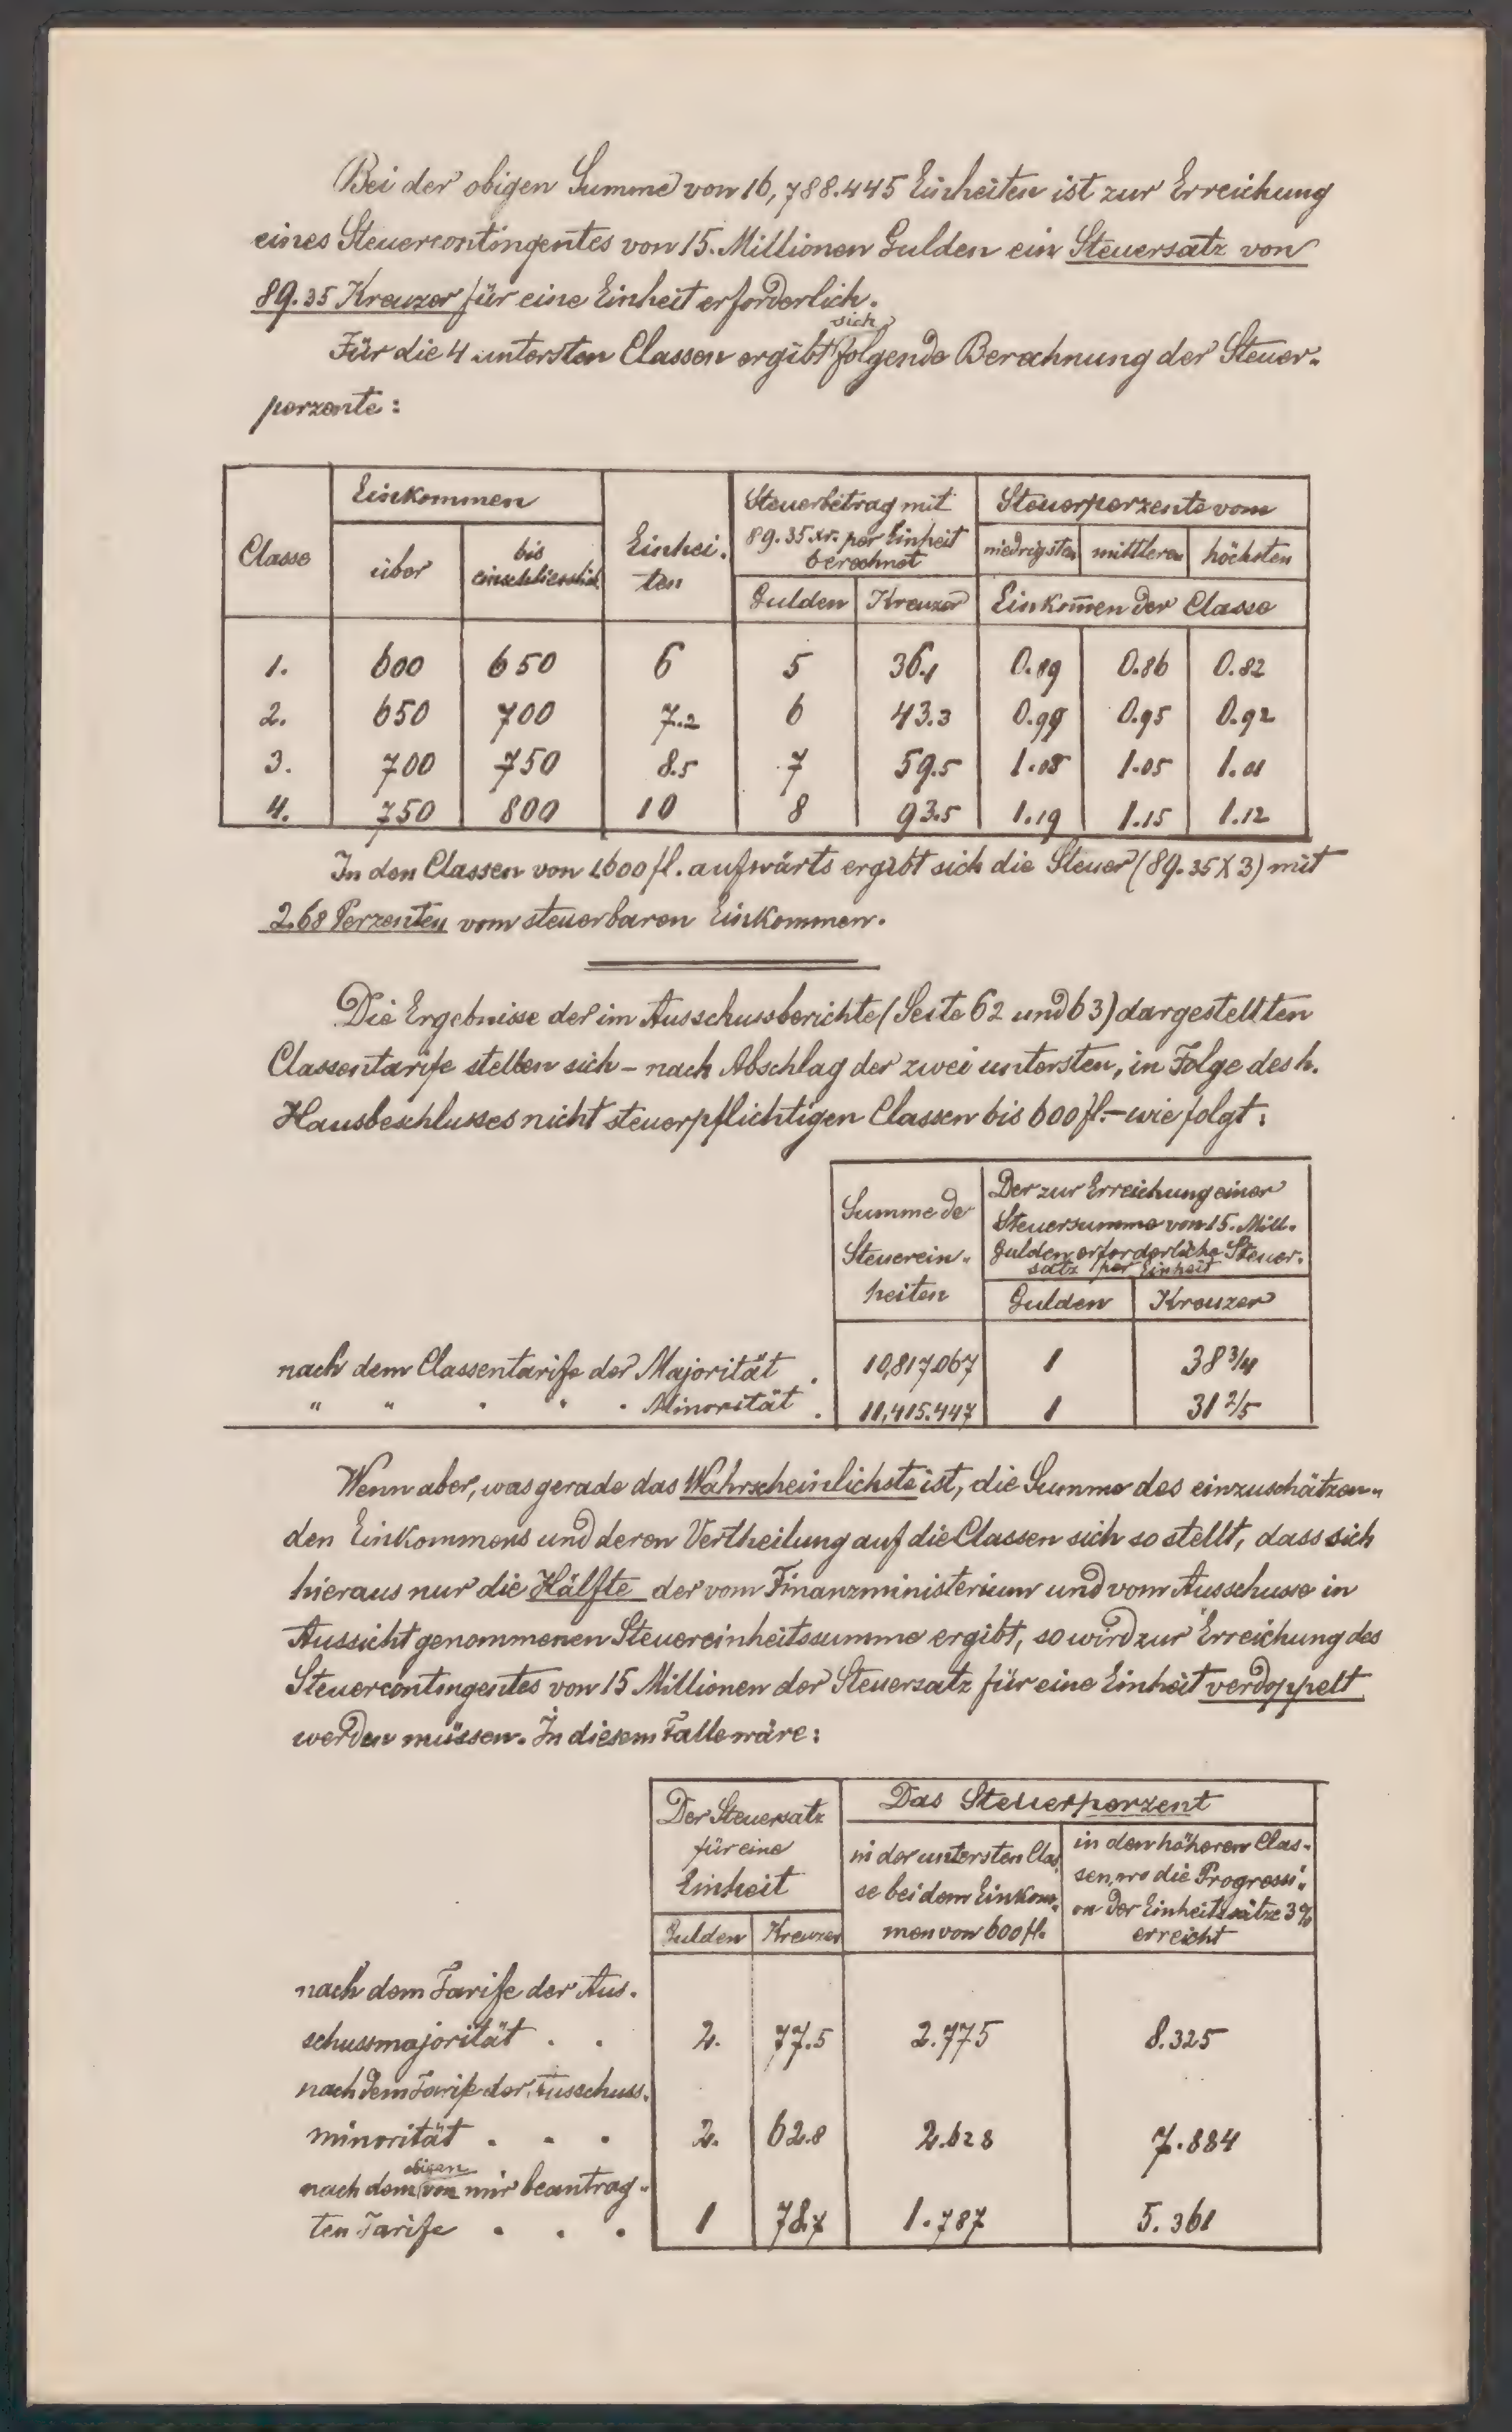 Bei der obigen Summe von 16,788.445 Einheiten ist zur Erreichung
eines Steuercontingentes von 15. Millionen Gulden ein Steuersatz von
89.35 Kreuzer für eine Einheit erforderlich.
sich
Für die 4 untersten Classen ergibt folgende Berechnung der Steuer-
perzente:
Classe
Einkommen
über
bis einschliesslich
Einhei-
ten
Steuerbetrag mit
89.35 xr. per Einheit
berechnet
Gulden Kreuzer
Steuerperzente vom
niedrigsten mittleren höchsten
Einkom̅en der Classe
1. 600 650 6 5 36.1 0.89 0.86 0.82
2. 650 700 7.2 6 43.3 0.99 0.95 0.92
3. 700 750 8.5 7 59.5 1.08 1.05 1.01
4. 750 800 10 8 93.5 1.19 1.15 1.12
In den Classen von 1600 fl. aufwärts ergibt sich die Steuer (89.35 X 3) mit
2.68 Perzenten vom steuerbaren Einkommen.
Die Ergebnisse der im Ausschussberichte (Seite 62 und 63) dargestellten
Classentarife stellen sich – nach Abschlag der zwei untersten, in Folge des h.
Hausbeschlusses nicht steuerpflichtigen Classen bis 600 fl. – wie folgt:
Summe de
Steuerein-
heiten
Der zur Erreichung einer
Steuersumme von 15. Mill.
Gulden erforderliche Steuer-
satz per Einheit
Gulden Kreuzer
nach dem Classentarife der Majorität . 10,817.067 1 38 3/4
" " " " " Minorität . 11,415.447 1 31 2/5
Wenn aber, was gerade das Wahrscheinlichste ist, die Summe des einzuschätzen-
den Einkommens und deren Vertheilung auf die Classen sich so stellt, dass sich
hieraus nur die Hälfte der vom Finanzministerium und vom Ausschusse in
Aussicht genommenen Steuereinheitssumme ergibt, so wird zur Erreichung des
Steuercontingentes von 15 Millionen der Steuersatz für eine Einheit verdoppelt
werden müssen. In diesem Falle wäre:
Der Steuersatz
für eine
Einheit
Gulden Kreuzer
Das Steuerperzent
in der untersten Clas
se bei dem Einkom-
men von 600 fl.
in den höheren Clas-
sen, wo die Progressi-
on der Einheitssätze 3%
erreicht
nach dem Tarife der Aus-
schussmajorität . . 2. 77.5 2.775 8.325
nach dem Tarife der Ausschuss-
minorität . . . 2. 62.8 2.628 7.884
obigen
nach dem von mir beantrag-
ten Tarife . . . 1 78.7 1.787 5.361